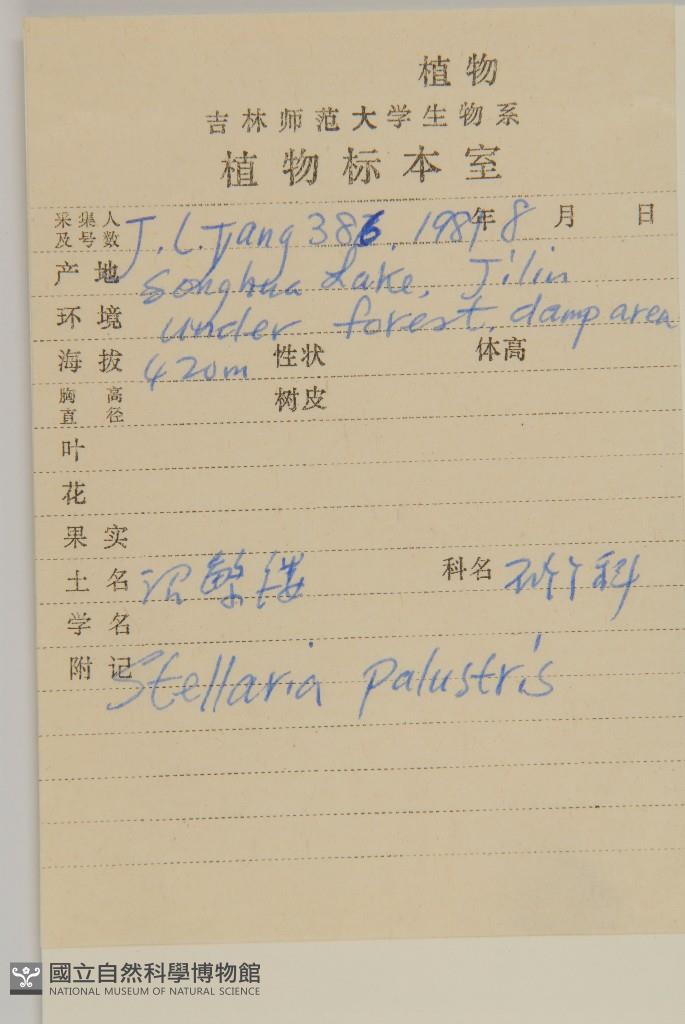 植物
吉林师范大学生物系
植物标本室
采集人及号数 J. L. Tang 386, 1989年 8 月 日
产地 Songhua Lake, Jilin
环境 under forest, damp area
海拔 420m 性状 体高
胸高直径 树皮
叶
花
果实
土名 沼繁缕 科名 石竹科
学名
附记 Stellaria palustris
國立自然科學博物館
NATIONAL MUSEUM OF NATURAL SCIENCE